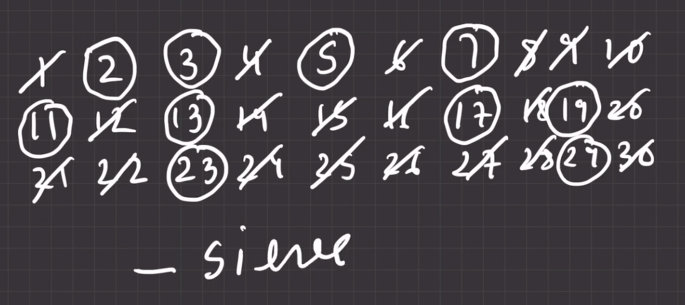 1 2 3 4 5 6 7 8 9 10
11 12 13 14 15 16 17 18 19 20
21 22 23 24 25 26 27 28 29 30
— sieve